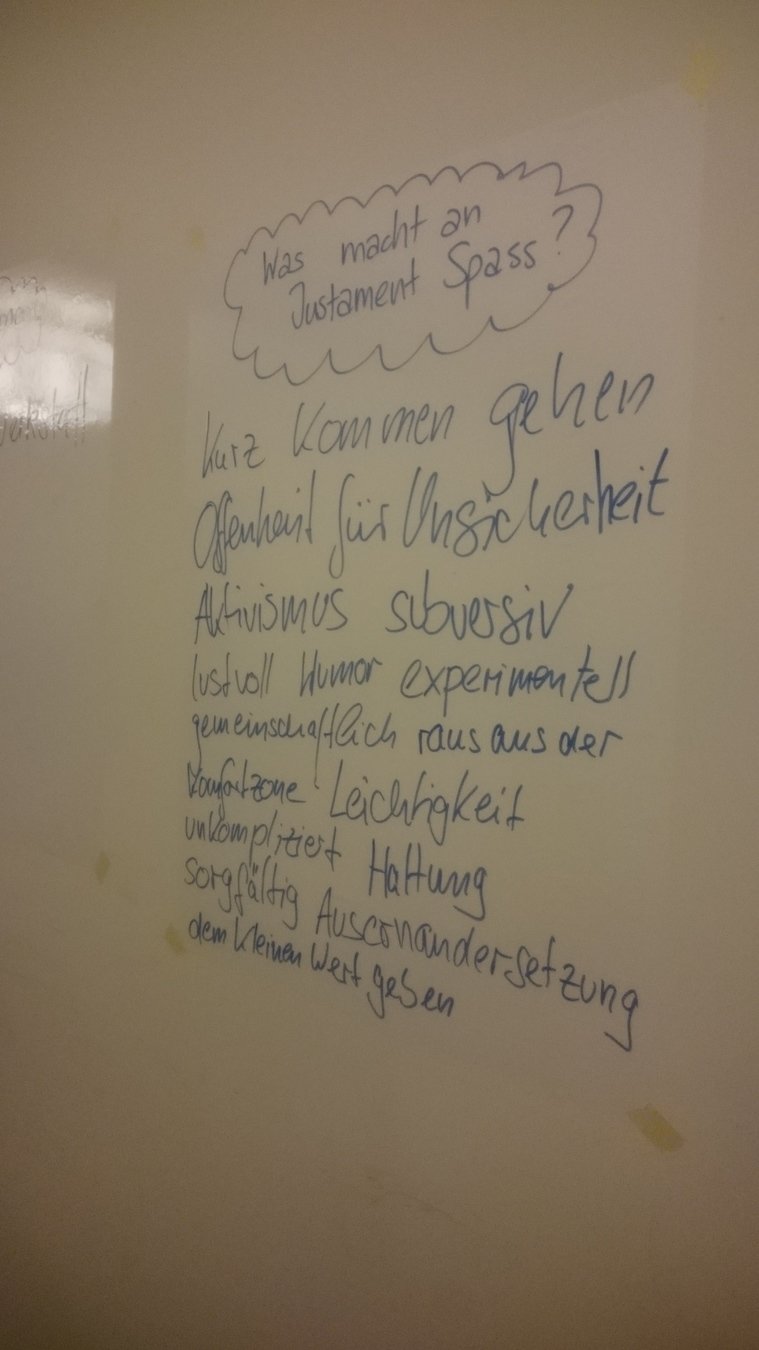 Was macht an
Justament Spass?
Kurz Kommen gehen
Offenheit für Unsicherheit
Aktivismus subversiv
lustvoll Humor experimentell
gemeinschaftlich raus aus der
Komfortzone Leichtigkeit
unkompliziert Haltung
sorgfältig Auseinandersetzung
dem kleinen Wert geben